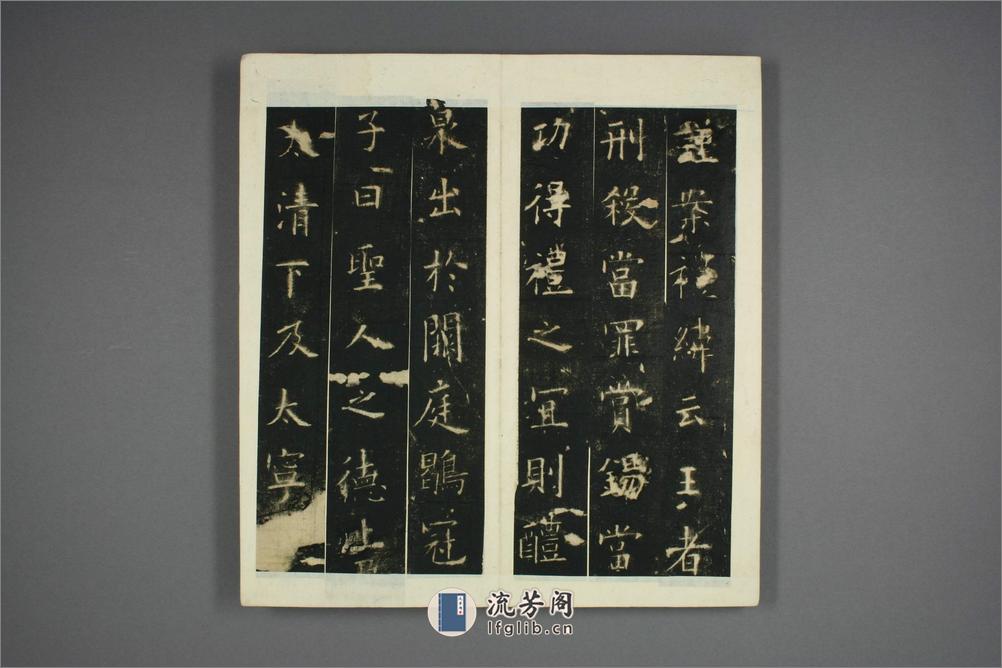 謹案禮緯云王者
刑殺當罪賞錫當
功得禮之宜則醴
泉出於闕庭鶡冠
子曰聖人之德上及
太清下及太寧
流芳阁
lfglib.cn